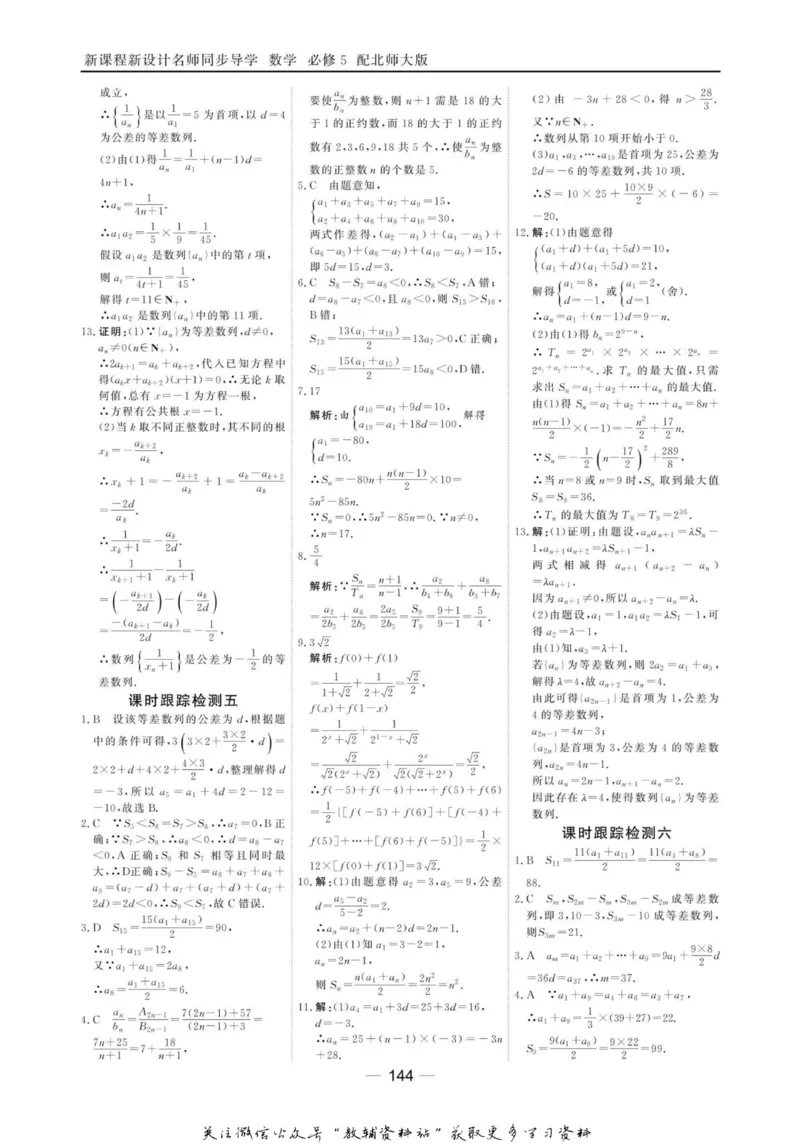 新课程新设计名师同步导学 数学 必修5 配北师大版
成立,
∴{1/aₙ}是以1/a₁=5为首项,以d=4
为公差的等差数列.
(2)由(1)得1/aₙ=1/a₁+(n-1)d=
4n+1,
∴aₙ=1/(4n+1).
∴a₁a₂=1/5×1/9=1/45.
假设a₁a₂是数列{aₙ}中的第t项,
则aₜ=1/(4t+1)=1/45,
解得t=11∈N₊,
∴a₁a₂是数列{aₙ}中的第11项.
13.证明:(1)∵{aₙ}为等差数列,d≠0,
aₙ≠0(n∈N₊),
∴2aₖ₊₁=aₖ+aₖ₊₂,代入已知方程中
得(aₖx+aₖ₊₂)(x+1)=0,∴无论k取
何值,总有x=-1为方程一根,
∴方程有公共根x=-1.
(2)当k取不同正整数时,其不同的根
xₖ=-aₖ₊₂/aₖ,
∴xₖ+1=-aₖ₊₂/aₖ+1=(aₖ-aₖ₊₂)/aₖ
=-2d/aₖ.
∴1/(xₖ+1)=-aₖ/2d.
∴1/(xₖ₊₁+1)-1/(xₖ+1)
=(-aₖ₊₁/2d)-(-aₖ/2d)
=-(aₖ₊₁-aₖ)/2d=-1/2,
∴数列{1/(xₙ+1)}是公差为-1/2的等
差数列.
课时跟踪检测五
1.B 设该等差数列的公差为d,根据题
中的条件可得,3(3×2+(3×2)/2·d)=
2×2+d+4×2+(4×3)/2·d,整理解得d
=-3,所以a₅=a₁+4d=2-12=
-10,故选B.
2.C ∵S₅<S₆=S₇>S₈,∴a₇=0,B正
确;∵S₇>S₈,∴a₈<0,∴d=a₈-a₇
<0,A正确;S₆和S₇相等且同时最
大,∴D正确;S₉-S₅=a₆+a₇+a₈+
a₉=(a₇-d)+a₇+(a₇+d)+(a₇+
2d)=2d<0,∴S₉<S₅,故C错误.
3.D S₁₅=15(a₁+a₁₅)/2=90,
∴a₁+a₁₅=12,
又∵a₁+a₁₅=2a₈,
∴a₈=(a₁+a₁₅)/2=6.
4.C aₙ/bₙ=A₂ₙ₋₁/B₂ₙ₋₁=(7(2n-1)+57)/((2n-1)+3)=
(7n+25)/(n+1)=7+18/(n+1),
要使aₙ/bₙ为整数,则n+1需是18的大
于1的正约数,而18的大于1的正约
数有2,3,6,9,18共5个,∴使aₙ/bₙ为整
数的正整数n的个数是5.
5.C 由题意知,
{a₁+a₃+a₅+a₇+a₉=15,
a₂+a₄+a₆+a₈+a₁₀=30,
两式作差得,(a₂-a₁)+(a₄-a₃)+
(a₆-a₅)+(a₈-a₇)+(a₁₀-a₉)=15,
即5d=15,d=3.
6.C S₈-S₇=a₈<0,∴S₈<S₇,A错;
d=a₈-a₇<0,且a₈<0,则S₁₅>S₁₆,
B错;
S₁₃=13(a₁+a₁₃)/2=13a₇>0,C正确;
S₁₅=15(a₁+a₁₅)/2=15a₈<0,D错.
7.17
解析:由{a₁₀=a₁+9d=10, a₁₉=a₁+18d=100, 解得
{a₁=-80,
d=10.
∴Sₙ=-80n+n(n-1)/2×10=
5n²-85n.
∵Sₙ=0,∴5n²-85n=0.∵n≠0,
∴n=17.
8.5/4
解析:∵Sₙ/Tₙ=(n+1)/(n-1),∴a₂/(b₄+b₆)+a₈/(b₃+b₇)
=a₂/2b₅+a₈/2b₅=2a₅/2b₅=S₉/T₉=(9+1)/(9-1)=5/4.
9.3√2
解析:f(0)+f(1)
=1/(1+√2)+1/(2+√2)=√2/2,
f(x)+f(1-x)
=1/(2ˣ+√2)+1/(2¹⁻ˣ+√2)
=√2/(√2(2ˣ+√2))+2ˣ/(√2(√2+2ˣ))=√2/2,
∴f(-5)+f(-4)+…+f(5)+f(6)
=1/2{[f(-5)+f(6)]+[f(-4)+
f(5)]+…+[f(6)+f(-5)]}=1/2×
12×[f(0)+f(1)]=3√2.
10.解:(1)由题意得a₂=3,a₅=9,公差
d=(a₅-a₂)/(5-2)=2.
∴aₙ=a₂+(n-2)d=2n-1.
(2)由(1)知a₁=3-2=1,
aₙ=2n-1,
则Sₙ=n(a₁+aₙ)/2=2n²/2=n².
11.解:(1)a₄=a₁+3d=25+3d=16,
d=-3.
∴aₙ=25+(n-1)×(-3)=-3n
+28.
(2)由-3n+28<0,得n>28/3.
又∵n∈N₊.
∴数列从第10项开始小于0.
(3)a₁,a₃,…,a₁₉是首项为25,公差为
2d=-6的等差数列,共10项.
∴S=10×25+(10×9)/2×(-6)=
-20.
12.解:(1)由题意得
{(a₁+d)+(a₁+5d)=10,
(a₁+d)(a₁+5d)=21,
解得{a₁=8, d=-1, 或{a₁=2, d=1 (舍).
∴aₙ=a₁+(n-1)d=9-n.
(2)由(1)得bₙ=2⁹⁻ⁿ,
∴Tₙ=2^a₁×2^a₂×…×2^aₙ=
2^(a₁+a₂+…+aₙ),求Tₙ的最大值,只需
求出Sₙ=a₁+a₂+…+aₙ的最大值.
由(1)得Sₙ=a₁+a₂+…+aₙ=8n+
n(n-1)/2×(-1)=-n²/2+17/2n.
∵Sₙ=-1/2(n-17/2)²+289/8,
∴当n=8或n=9时,Sₙ取到最大值
S₈=S₉=36.
∴Tₙ的最大值为T₈=T₉=2³⁶.
13.解:(1)证明:由题设,aₙaₙ₊₁=λSₙ-
1,aₙ₊₁aₙ₊₂=λSₙ₊₁-1,
两式相减得aₙ₊₁(aₙ₊₂-aₙ)
=λaₙ₊₁.
因为aₙ₊₁≠0,所以aₙ₊₂-aₙ=λ.
(2)由题设,a₁=1,a₁a₂=λS₁-1,可
得a₂=λ-1,
由(1)知,a₃=λ+1.
若{aₙ}为等差数列,则2a₂=a₁+a₃,
解得λ=4,故aₙ₊₂-aₙ=4.
由此可得{a₂ₙ₋₁}是首项为1,公差为
4的等差数列,
a₂ₙ₋₁=4n-3;
{a₂ₙ}是首项为3,公差为4的等差数
列,a₂ₙ=4n-1.
所以aₙ=2n-1,aₙ₊₁-aₙ=2.
因此存在λ=4,使得数列{aₙ}为等差
数列.
课时跟踪检测六
1.B S₁₁=11(a₁+a₁₁)/2=11(a₃+a₈)/2=
88.
2.C Sₘ,S₂ₘ-Sₘ,S₃ₘ-S₂ₘ成等差数
列,即3,10-3,S₃ₘ-10成等差数列,
则S₃ₘ=21.
3.A aₘ=a₁+a₂+…+a₉=9a₁+(9×8)/2d
=36d=a₃₇,∴m=37.
4.A ∵a₁+a₉=a₄+a₆=a₃+a₇,
∴a₁+a₉=1/3×(39+27)=22.
S₉=9(a₁+a₉)/2=(9×22)/2=99.
— 144 —
关注微信公众号“教辅资料站”获取更多学习资料